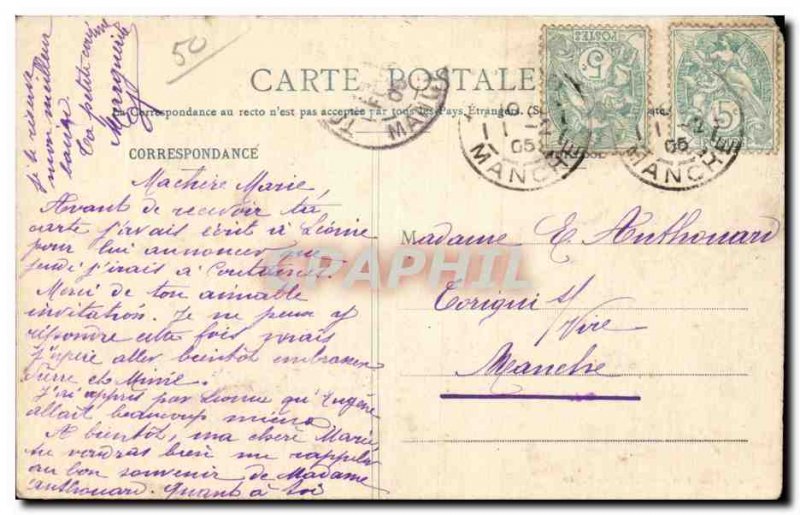 50
CARTE POSTALE
La Correspondance au recto n'est pas acceptée par tous les Pays Étrangers. (S
CORRESPONDANCE
POSTES
5c
5c
MANCHE
05
MANCHE
05
Ma chère Marie,
Avant de recevoir ta
carte j'avais écrit à Léonie
pour lui annoncer que
jeudi j'irais à Coutances.
Merci de ton aimable
invitation. Je ne peux y
répondre cette fois mais
j'espère aller bientôt embrasser
Pierre et Mimie.
J'ai appris par Léonie qu'Eugène
allait beaucoup mieux
A bientôt, ma chère Marie
tu voudras bien me rappeler
au bon souvenir de Madame
Anthouard. Quant à toi
je te réserve
mon meilleur
baiser
Ta petite
Marguerite
Madame E. Anthouard
Torigni s/
Vire
Manche
EPAPHIL